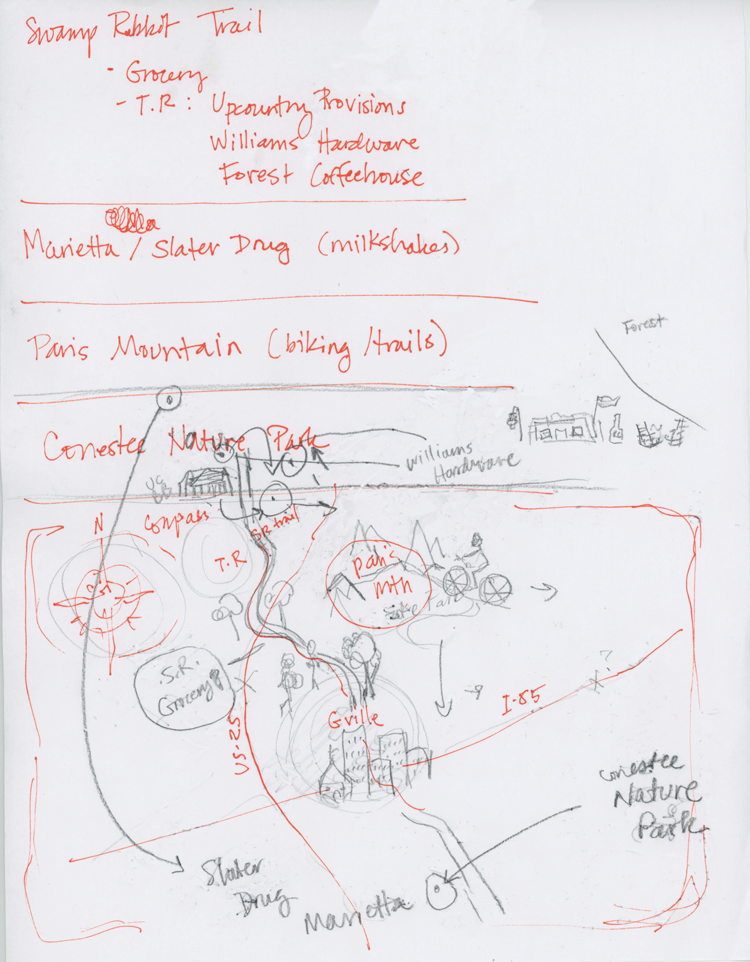 Swamp Rabbit Trail
- Grocery
- T.R : Upcountry Provisions
Williams Hardware
Forest Coffeehouse
Marietta / Slater Drug (milkshakes)
Paris Mountain (biking /trails)
Forest
Conestee Nature Park
Williams
Hardware
N
Compass
SR trail
T.R
Paris
Mtn
S.R.
Grocery
US-25
Gville
I-85
?
Conestee
Nature
Park
Slater
Drug
Marietta